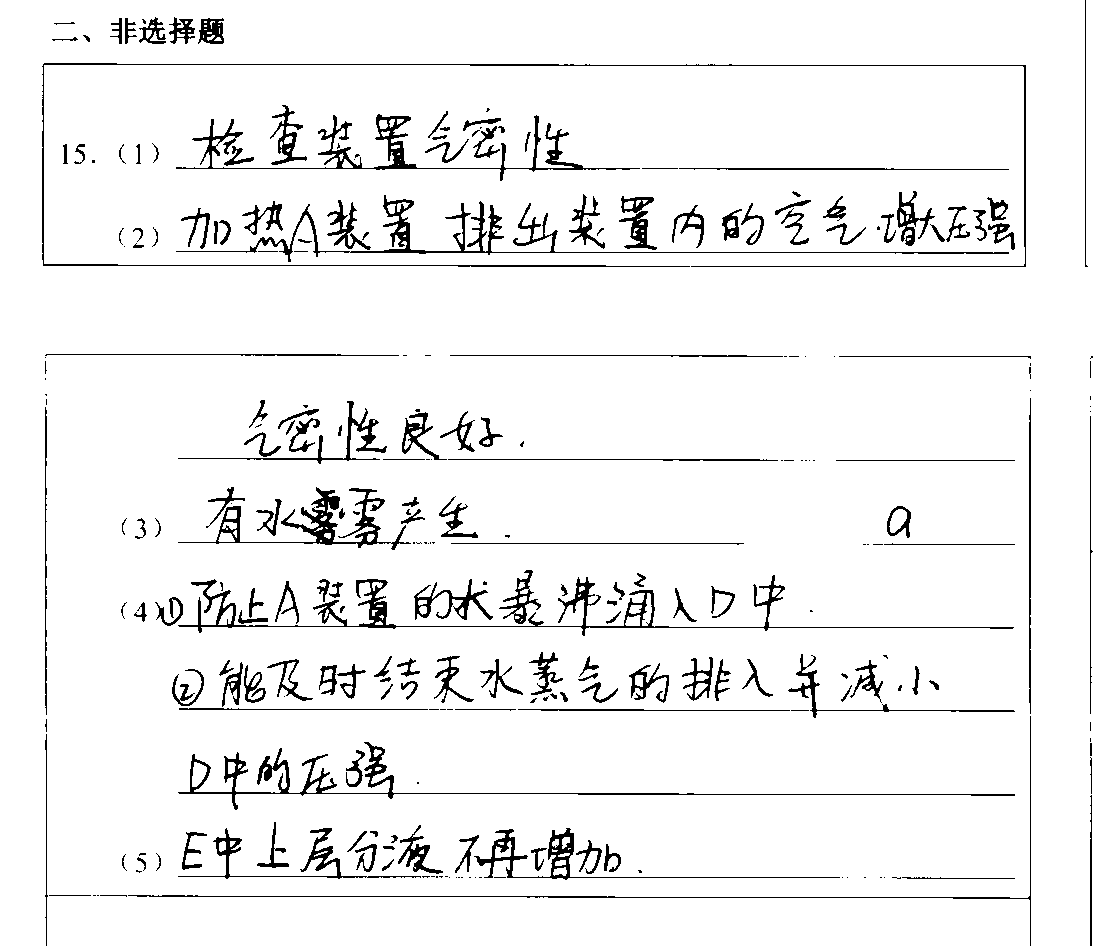 二、非选择题
15.（1）检查装置气密性
（2）加热A装置 排出装置内的空气.增大压强
气密性良好.
（3）有水雾产生. a
（4）①防止A装置的水暴沸涌入D中.
②能及时结束水蒸气的排入并减小
D中的压强.
（5）E中上层分液不再增加.